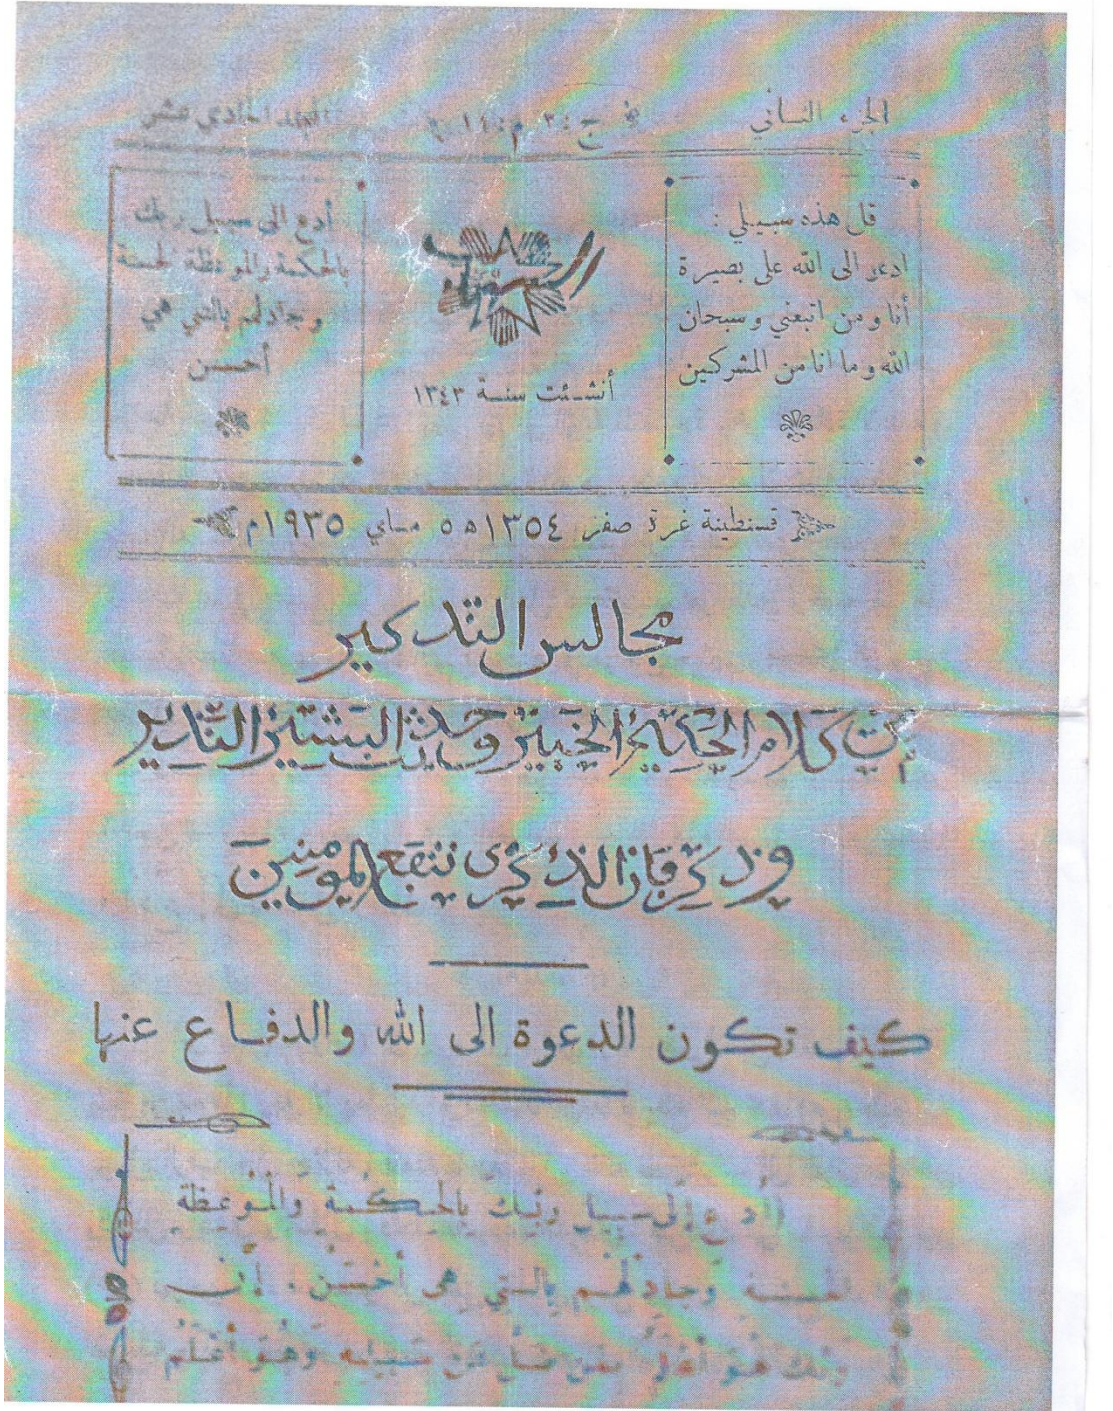 الجزء الثاني
ج ٢ م ١١
المجلد الحادي عشر
قل هذه سبيلي :
ادعو الى الله على بصيرة
أنا ومن اتبعني وسبحان
الله وما انا من المشركين
الشهاب
أنشئت سنة ١٣٤٣
أدع الى سبيل ربك
بالحكمة والموعظة الحسنة
وجادلهم بالتي هي
أحسن
قسنطينة غرة صفر ١٣٥٤ه ٥ ماي ١٩٣٥م
مجالس التذكير
من كلام الحكيم الخبير وحديث البشير النذير
وذكر فإن الذكرى تنفع المؤمنين
كيف تكون الدعوة الى الله والدفاع عنها
أدع إلى سبيل ربك بالحكمة والموعظة
الحسنة وجادلهم بالتي هي أحسن . إن
ربك هو أعلم بمن ضل عن سبيله وهو أعلم